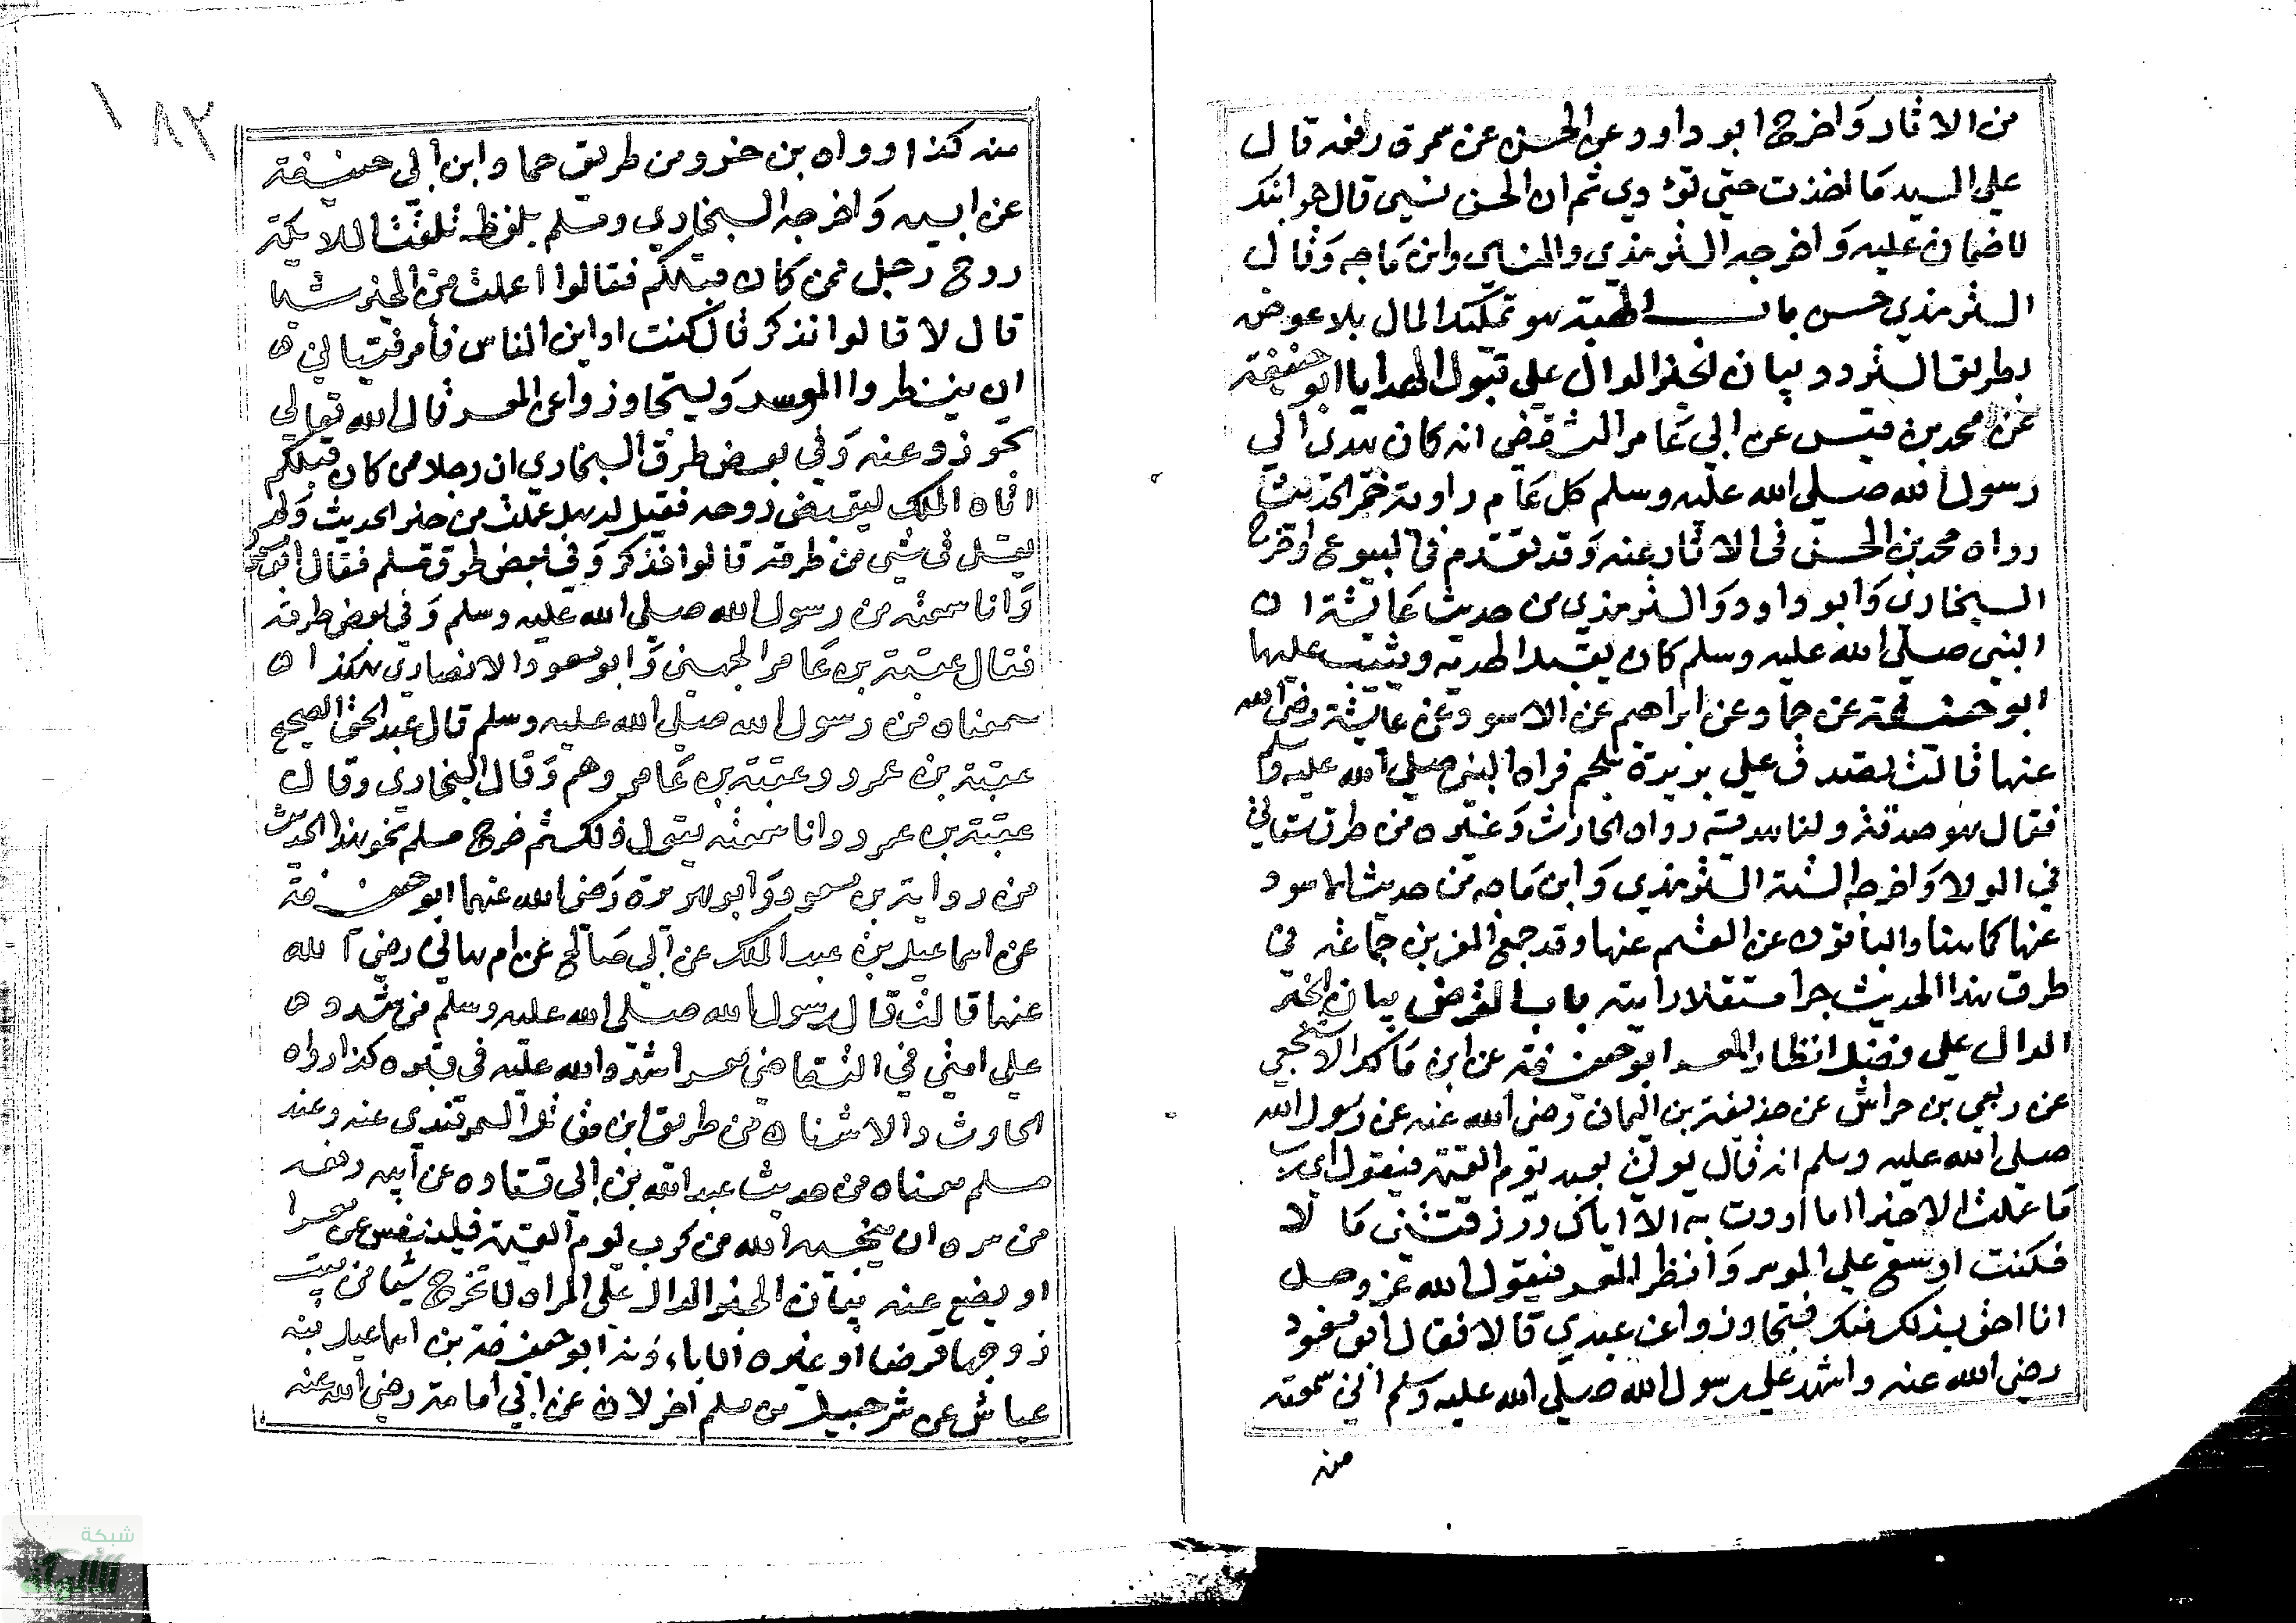 من الاثار وَاخرج ابو داود عن الحسن عن سمرة رفعه قال
علي اليد مَا اخذت حتي تؤدي ثم ان الحسن نسي قال هو امينك
لا ضمان عليه وَاخرجه الترمذي والنساي وابن مَاجه وَقال
الترمذي حسن باب الهبة هو تمليك المال بلا عوض
بطريق التودد بيان الخبر الدال علي قبول الهدايا ابو حنيفة
عَن محمد بن قيس عن ابي عَامر الثقفي انه كان يهدي الي
رسول الله صلي الله عليه وسلم كل عَام راوية خمر الحديث
رواه محمد بن الحسن في الاثار عنه وَقد تقدم في البيوع وَاخرج
البخاري وَابو داود وَالترمذي من حديث عَايشة ان
النبي صلي الله عليه وسلم كان يقبل الهدية ويثيب عليها
ابو حنيفة عن حماد عن ابراهيم عن الاسود عن عايشة رضي الله
عنها قالت تصدق علي بريرة بلحم فراه النبي صلي الله عليه وسلم
فقال هو صدقة ولنا هدية رواه الحارث وَغيره من طرق ستاتي
في الولا وَاخرجه الستة الترمذي وَابن مَاجه من حديث الاسود
عنها كما هنا والباقون عن القسم عنها وقد جمع الفربن جماعة في
طرق هذا الحديث جزا مستقلا رايته باب القرض بيان الخبر
الدال علي فضل انظار المعسر ابو حنيفة عن ابن مَالك الاشجعي
عن ربعي بن حراش عن حذيفة بن اليمان رضي الله عنه عن رسول الله
صلي الله عليه وسلم انه قال يوتي بعبد يوم القيمة فيقول اي رب
مَا عملت الا خيرا ما اردت به الا اياك ورزقتني مَا لا
فكنت اوسع علي الموسر وَانظر المعسر فيقول الله عز وجل
انا احق بذلك منك فتجاوزوا عن عبدي قالا فقال ابو مسعود
رضي الله عنه واشهد علي رسول الله صلي الله عليه وسلم اني سمعته
منه
١٨٢
منه كذا رواه بن خسرو من طريق حماد ابن ابي حنيفة
عن ابيه وَاخرجه البخاري ومسلم بلفظ تلقت الملايكة
روح رجل ممن كان قبلكم فقالوا اعملت من الخير شيا
قال لا قالوا تذكر قال كنت اداين الناس فامر فتياني
ان ينظروا الموسر وَيتجاوزوا عن المعسر قال الله تعالي
تجوزوا عنه وَفي بعض طرق البخاري ان رجلا ممن كان قبلكم
اتاه الملك ليقبض روحه فقيل له هل عملت من خير الحديث وَلم
يقل في شي من طرقه قالوا تذكر وَفي بعض طرق مسلم فقال ابو مسعود
وَانا سمعته من رسول الله صلي الله عليه وسلم وَفي بعض طرقه
فقال عقبة بن عَامر الجهني وَابو مسعود الانصاري هكذا
سمعناه من رسول الله صلي الله عليه وسلم قال عبد الحق الصحيح
عقبة بن عمرو وعقبة بن عَامر وهم وَقال البخاري وقال
عقبة بن عمرو وانا سمعته يقول ذلك ثم خرج مسلم نحو هذا الحديث
من رواية بن مسعود وَابو هريرة رَضي الله عنهما ابو حنيفة
عن اسماعيل بن عبد الملك عن ابي صَالح عن ام هاني رضي الله
عنها قالت قال رسول الله صلي الله عليه وسلم من شدد
علي امتي في التقاضي معسرا شدد الله عليه في قبره كذا رواه
الحارث والاشناني من طريق ابن مقاتل السمرقندي عنه وعند
مسلم معناه من حديث عبد الله بن ابي قتاده عن ابيه رفعه
من سره ان ينجيه الله من كرب يوم القيمة فلينفس عن معسرا
او يضع عنه بيان الخبر الدال علي المراه لا تخرج شيا من بيت
زوجها قرضا او غيره الا باذنه ابو حنيفة بن اسماعيل بنه
عياش عن شرحبيل من مسلم اخر لان عن ابي امامة رضي الله عنه
شبكة
الألوكة